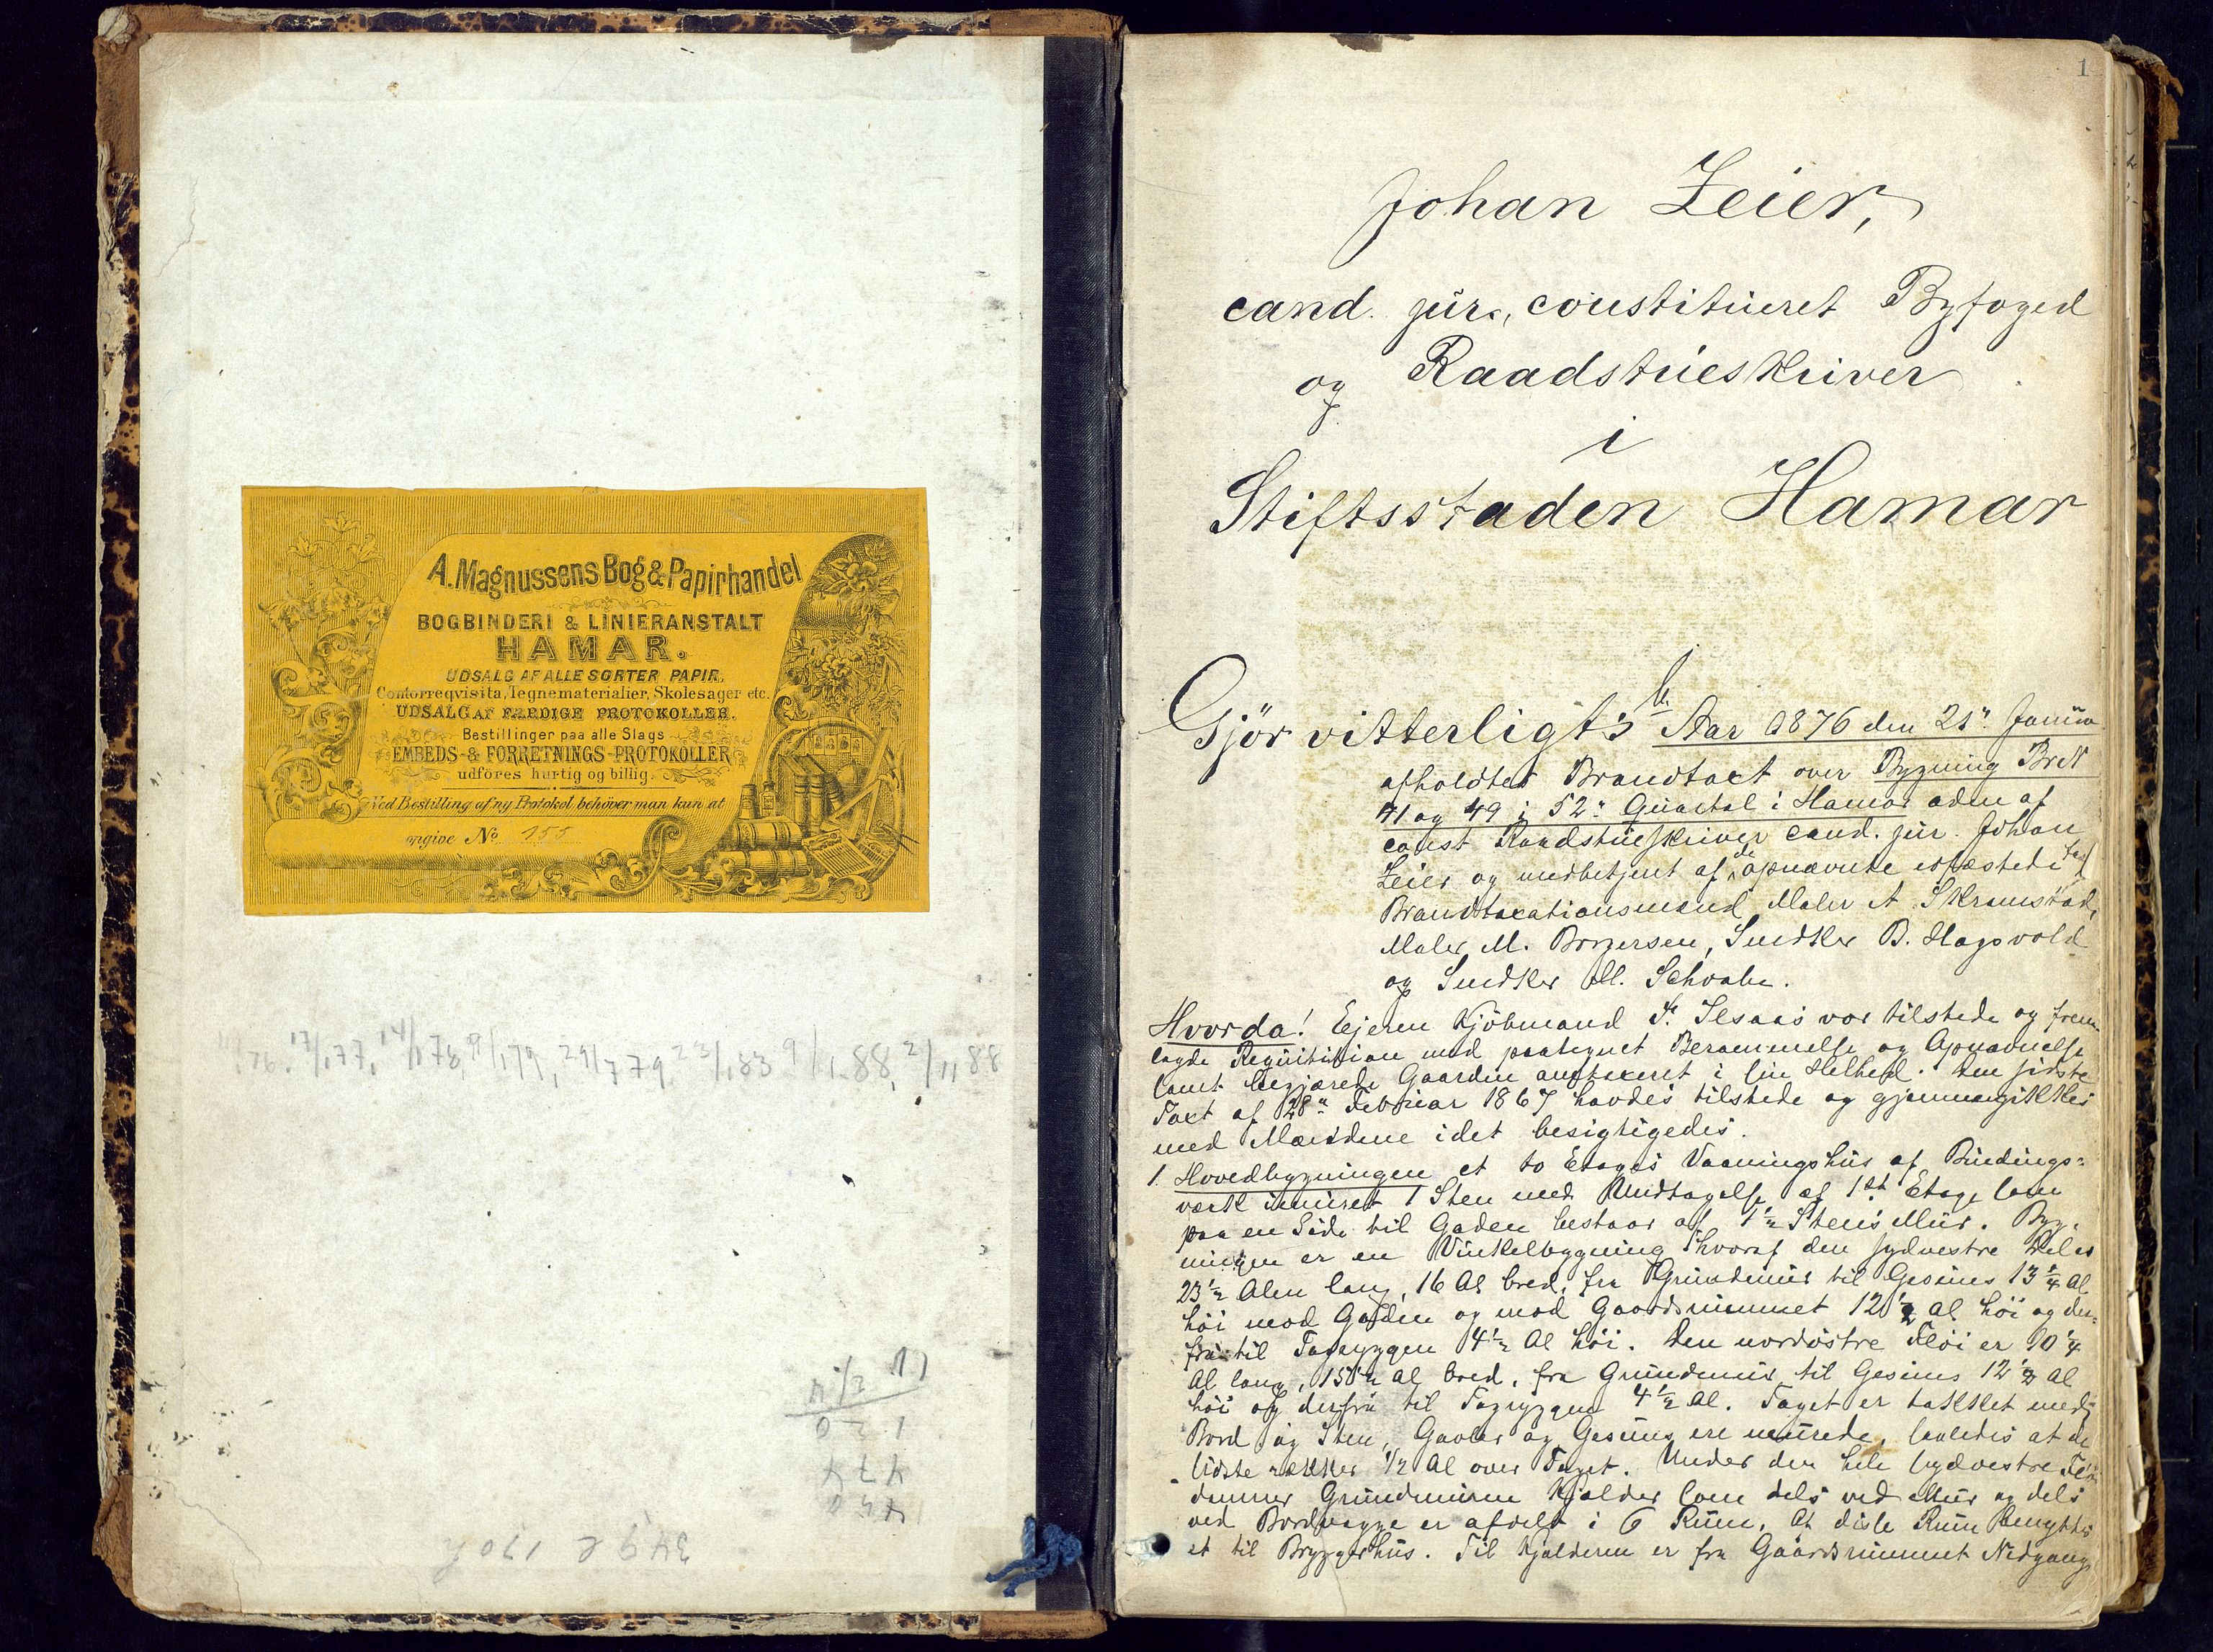 A. Magnussens Bog & Papirhandel
BOGBINDERI & LINIERANSTALT
HAMAR.
UDSALG AF ALLE SORTER PAPIR,
Contorreqvisita, Tegnematerialier, Skolesager etc.
UDSALG AF FÆRDIGE PROTOKOLLER.
Bestillinger paa alle Slags
EMBEDS- & FORRETNINGS-PROTOKOLLER
udföres hurtig og billig.
Ved Bestilling af ny Protokol behöver man kun at
opgive No. 155
17/1 77, 14/1 78, 9/1 79, 29/7 79. 23/1 83 9/1 88, 2/11 88
1
Johan Zeier,
cand. jur., constitueret Byfoged
og Raadstueskriver
i
Stiftsstaden Hamar
Gjör vitterligt: Aar 1876 den 21" Janua
afholdtes Brandtaxt over Bygning Br N
41 og 49 i 52" Quartal i Hamar af
const Raadstueskriver cand. jur. Johan
Zeier og medbetjent af de opnævnte
Brandtaxationsmænd Maler A. Skramstad,
Maler M. Borgersen, Snedker B. Hagsvold
og Snedker M. Schvabe.
Hvorda! Ejeren Kjöbmand var tilstede og frem-
lagde Requisition med paategnet Berammelse og Opnævnelse
samt begjærede Gaarden omtaxeret i sin Helhed. Den sidste
Taxt af 28" Februar 1867 havdes tilstede og gjennemgikkes
med Mændene idet besigtigedes.
1. Hovedbygningen et to Etages Vaaningshus af Bindings=
værk inmuret 1 Sten med Undtagelse af 1st Etage som
paa en Side til Gaden bestaar af 1½ Stens Mur. Byg-
ningen er en Vinkelbygning hvoraf den sydvestre Del er
23½ Alen lang, 16 Al bred, fra Grundmur til Gesims 13¼ Al
höi mod Gaden og mod Gaardsrummet 12½ Al höi og der-
fra til Tagryggen 4½ Al höi. Den nordöstre Flöi er 10¼
Al lang, 15½ Al bred, fra Grundmur til Gesims 12½ Al
höi og derfra til Tagryggen 4½ Al. Taget er takket med
Bord og Sten, Gavler og Gesims ere murede, saaledes at de
sidste rækker ½ Al over Taget. Under den hele sydvestre Flöi
danner Grundmuren Kjælder som dels ved Mur og dels
ved Bordvægge er afdelt i 6 Rum. Af disse Rum benyttes
et til Bryggerhus. Til Kjælderen er fra Gaardsrummet Nedgang